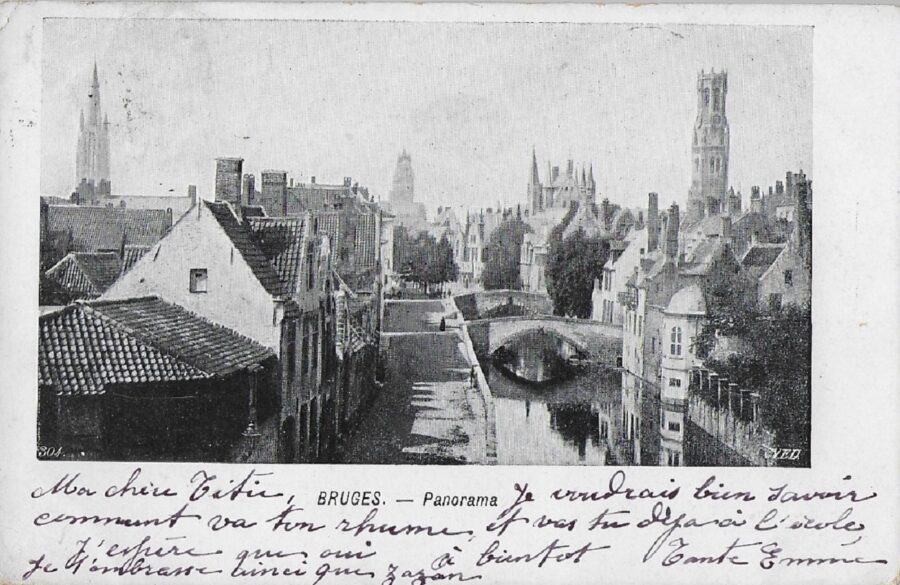 304
VED
BRUGES. — Panorama
Ma chère Titie, Je voudrais bien savoir
comment va ton rhume, et vas tu déja à l'école
J'espère que oui à bientot Tante Emmée
Je t'embrasse ainci que zazan